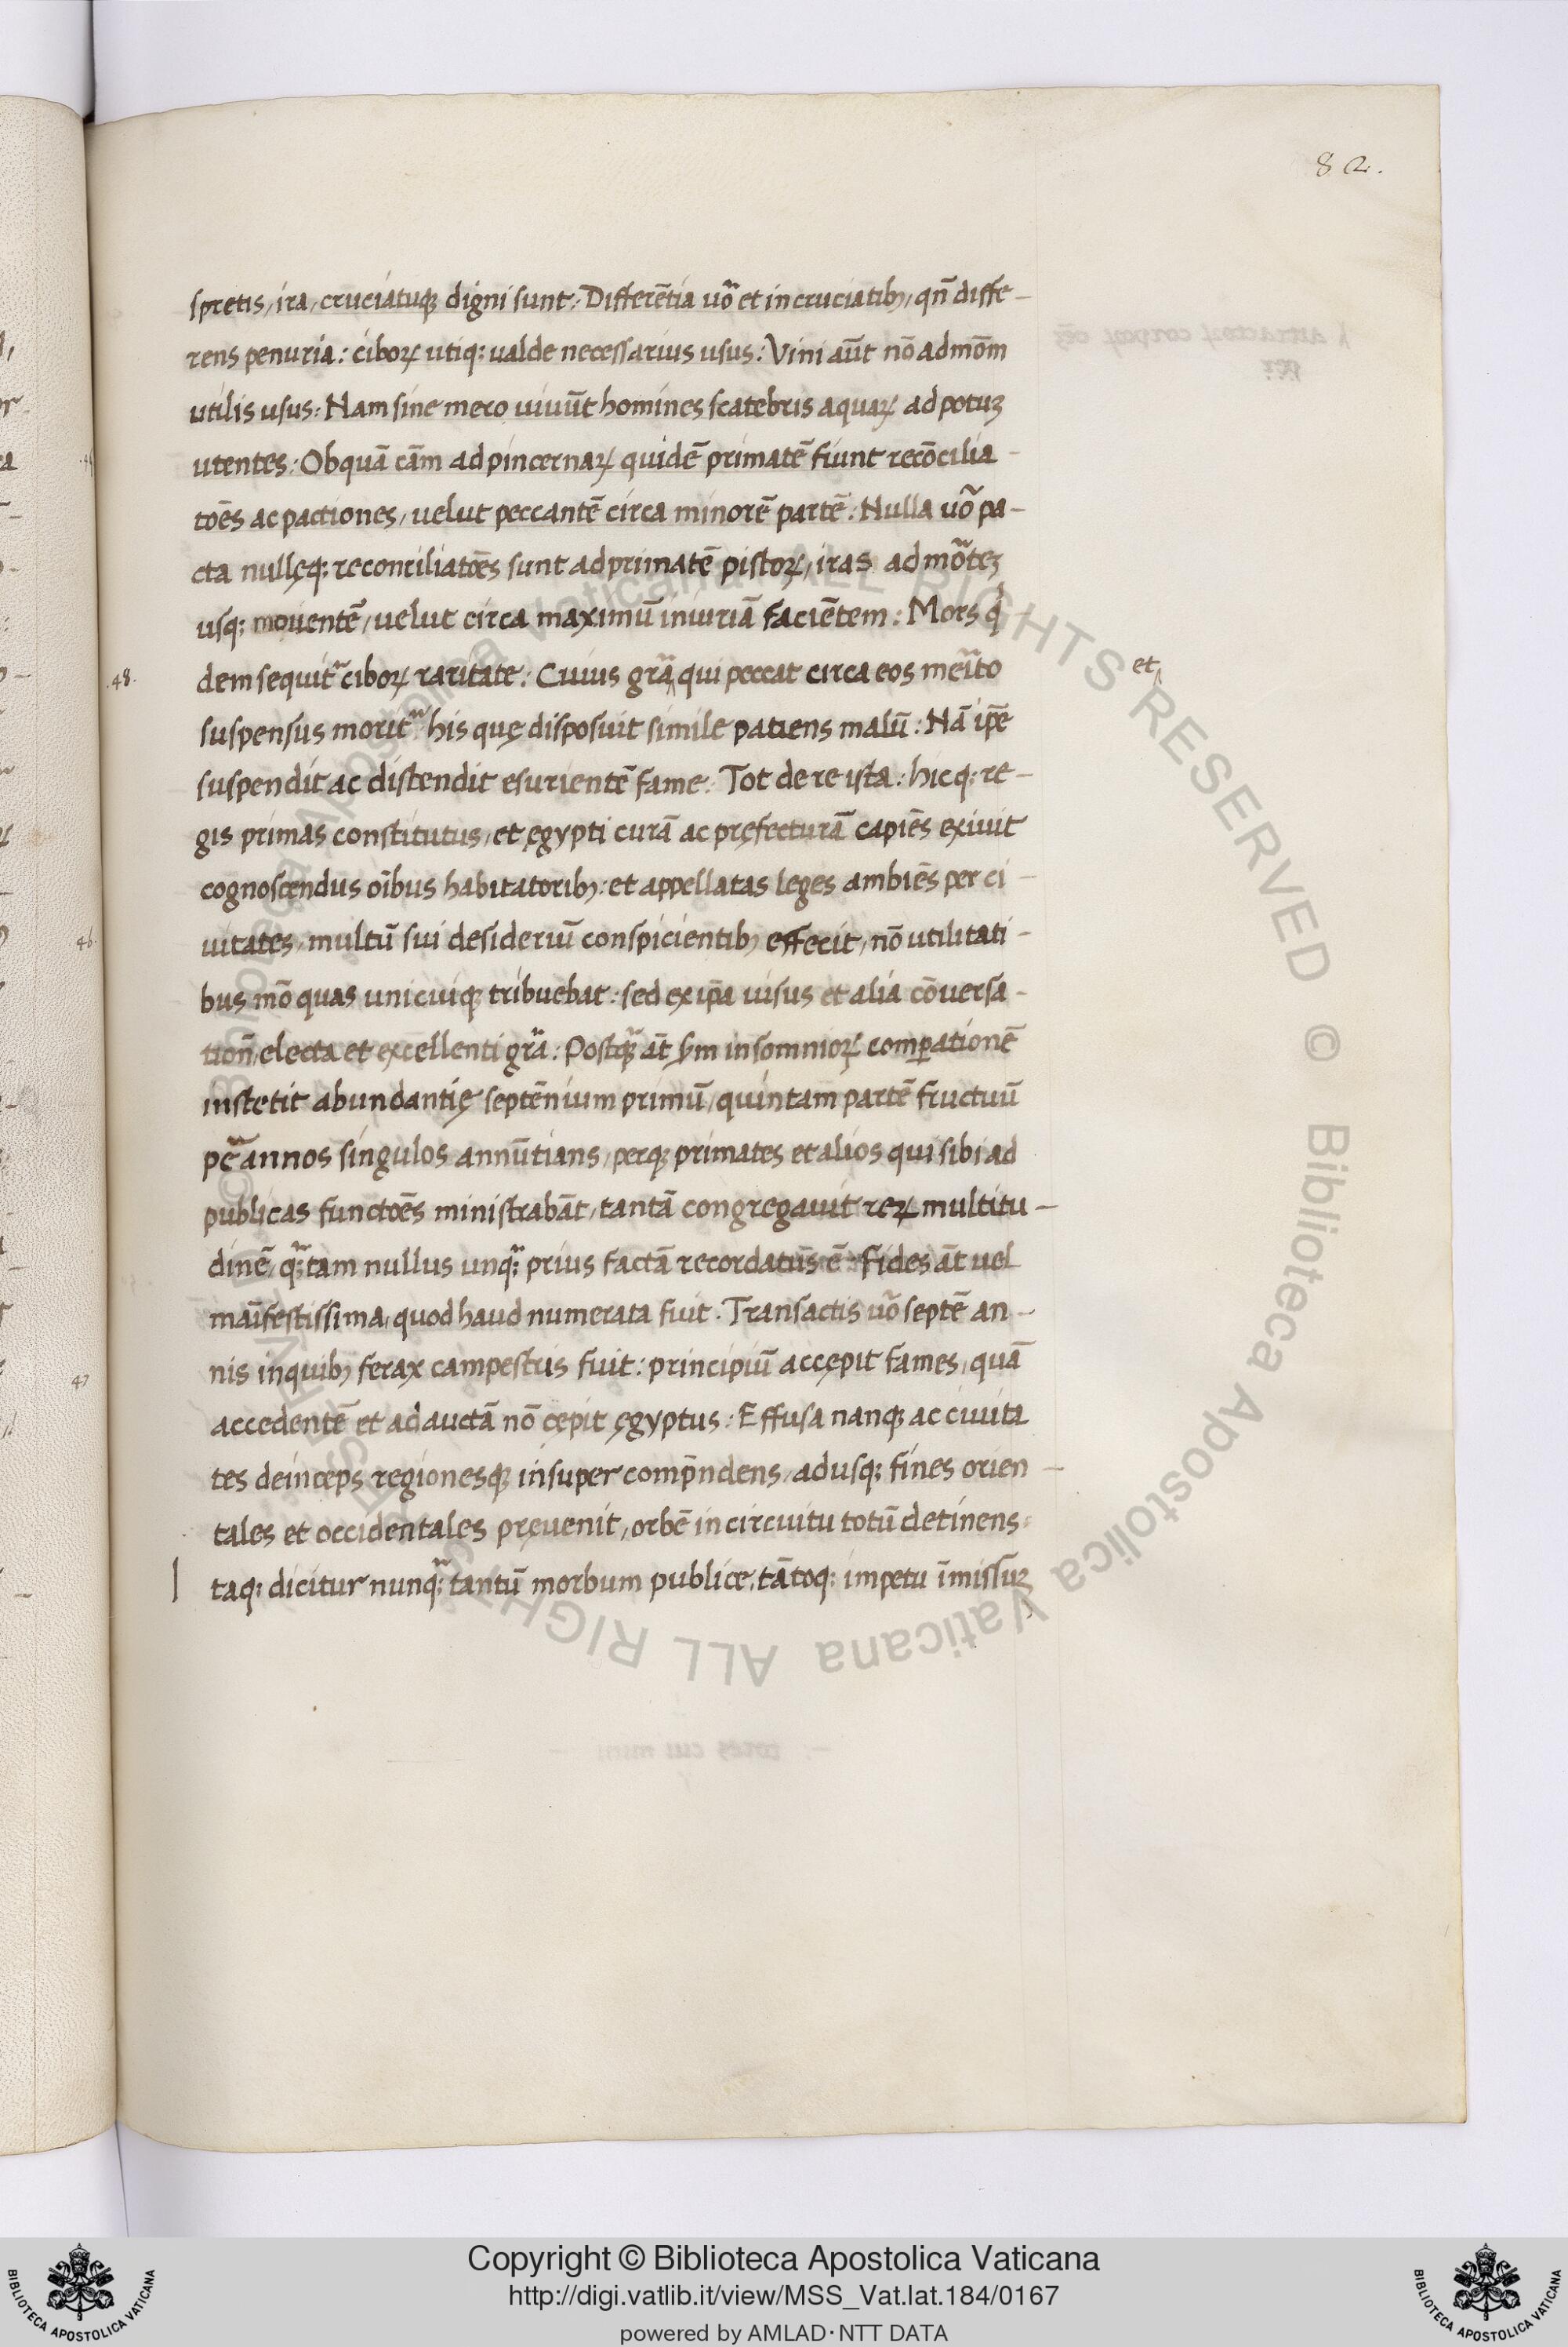 82.
spretis, ira, cruciatuq; digni sunt: Differētia uo᷒ et in cruciatib;, qn̄ diffe-
rens penuria: ciboꝝ utiq: ualde necessarius usus: Vini aūt nō admōm
utilis usus: Nam sine mero uiuūt homines scatebris aquaꝝ ad potuꝫ
utentes: Ob quā cām ad pincernaꝝ quidē primatē fiunt recōcilia-
toēs ac pactiones, uelut peccantē circa minorē partē: Nulla uō pa-
cta nullęq: reconciliatoēs sunt ad primatē pistoꝝ, iras ad mōteꝫ
usq: mouentē, uelut circa maximū iniuriā faciētem: Mors q'
48. dem sequit᷒ ciboꝝ raritate: Cuius gr̄a ‸ qui peccat circa eos mei᷒to et‸
suspensus morit᷒ his quę disposuit simile patiens malū: Nā ip̄e
suspendit ac distendit esurientē fame: Tot de re ista: hicq: re-
gis primas constitutus, et ęgypti curā ac pręfecturā capiēs exiuit
cognoscendus oībus habitatorib;: et appellatas leges ambiēs per ci-
uitates, multū sui desideriū conspicientib; effecit, nō utilitati-
bus mō quas unicuiq; tribuebat: sed ex ip̄a uisus et alia cōuersa-
tion̄, electa et excellenti gr̄a: Postq̄ āt s̄m insomnioꝝ comꝑationē
institit abundantię septēnium primū, quintam partē fructuū
annos singulos annūtians, perq; primates et alios qui sibi ad
publicas functoēs ministrabāt, tantā congregauit reꝝ multitu-
dinē, q̄;tam nullus unq̄; prius factā recordatus ē: Fides āt uel
māifestissima, quod haud numerata fuit. Transactis uō septē an-
nis inquib; ferax campestris fuit: principiū accępit fames, quā
accedentē et adauctā nō cępit ęgyptus: Effusa nanq; ac ciuita
tes deinceps regionesq; insuper comp̄ndens, adusq; fines orien-
tales et occidentales pręuenit, orbē in circuitu totū detinens:
taq: dicitur nunq̄; tantū morbum publice, tātoq: impetu īmissūꝫ
46.
47
Copyright © Biblioteca Apostolica Vaticana
http://digi.vatlib.it/view/MSS_Vat.lat.184/0167
powered by AMLAD·NTT DATA
BIBLIOTECA APOSTOLICA VATICANA
BIBLIOTECA APOSTOLICA VATICANA